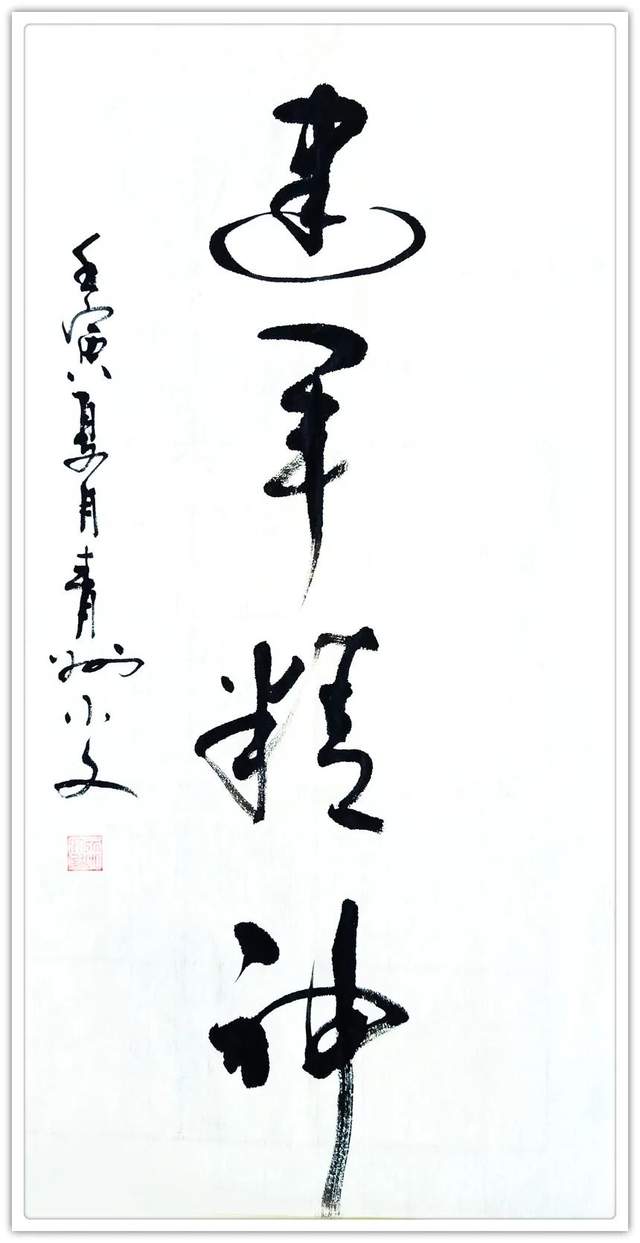 建军精神
壬寅夏月青州小文